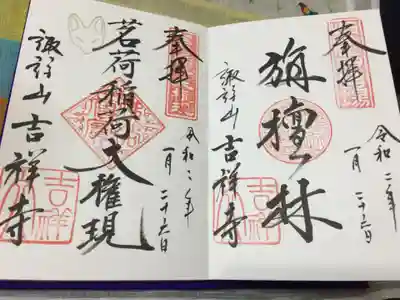 奉拝
令和二年
一月二十六日
旃檀林
諏訪山吉祥寺
吉祥
奉拝
令和二年
一月二十六日
茗荷稲荷大権現
諏訪山吉祥寺
吉祥